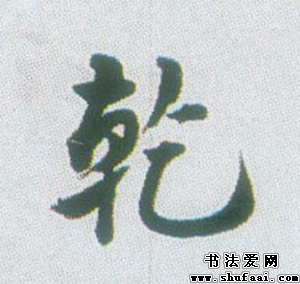 乾
书法爱网
www.shufaai.com